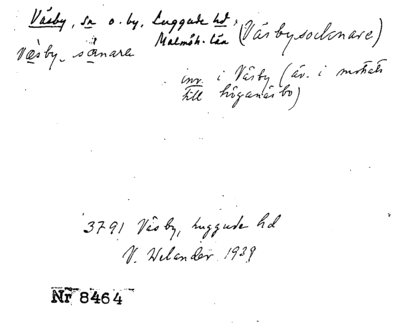 Väsby, sn o. by, Luggude hd,
Malmöh. län (Väsbysocknare)
Väsby, sånare
inv. i Väsby (äv. i motsats
till höganäsbo)
3791 Väsby, Luggude hd
V. Welander 1939
Nr 8464